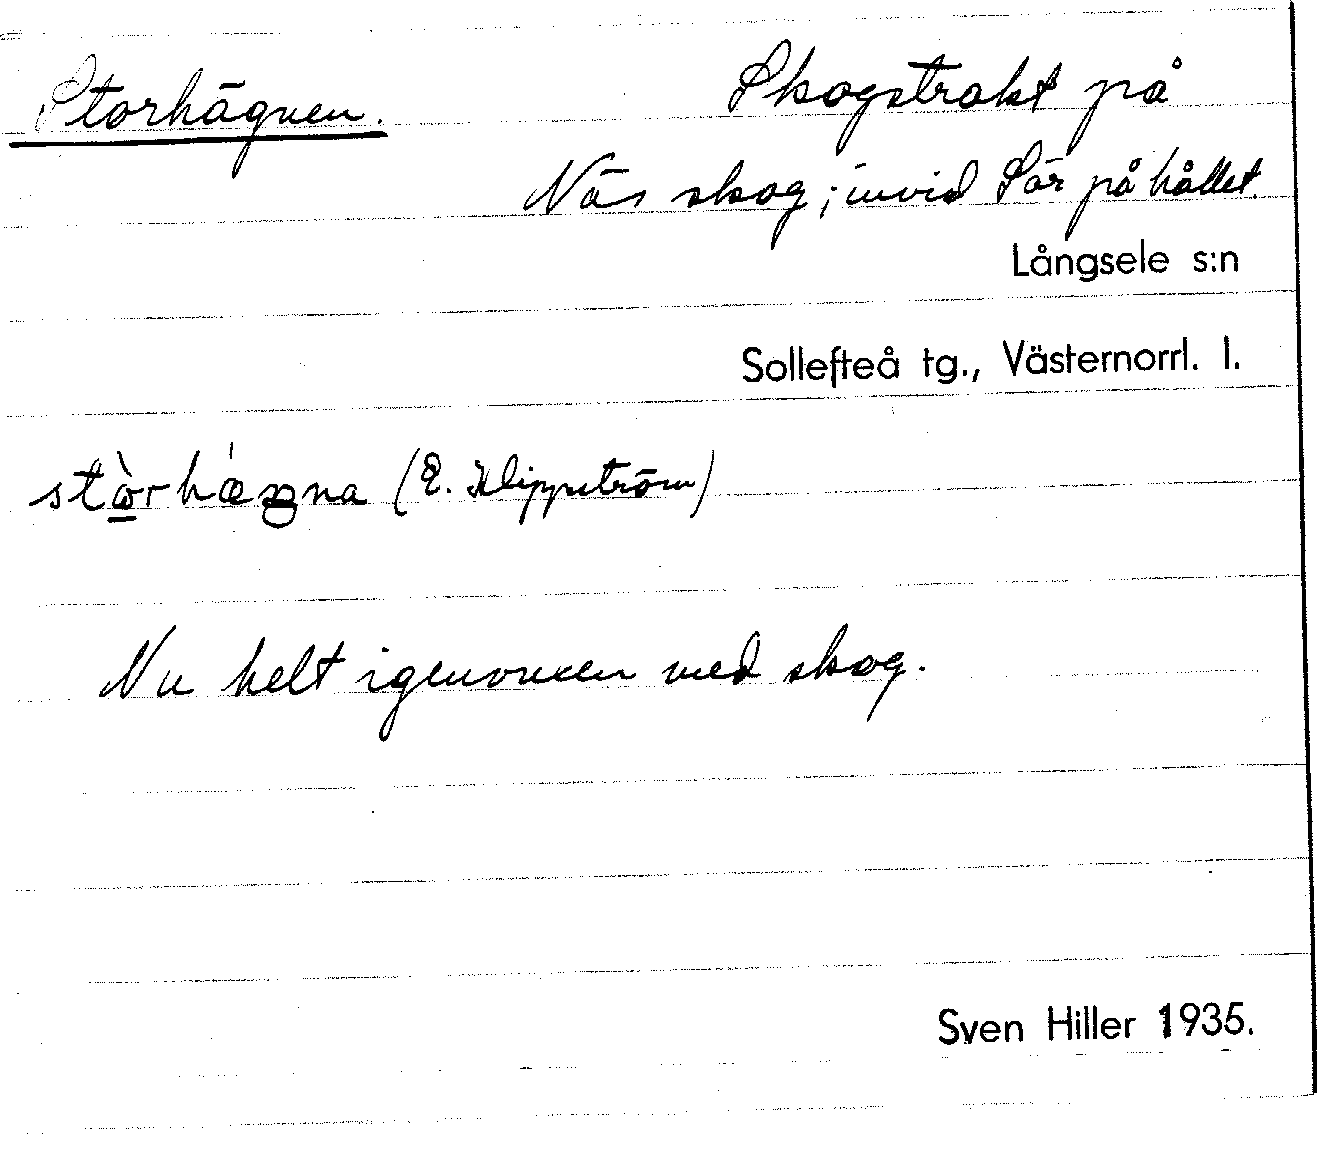 Storhägnen.
Skogstrakt på
Näs skog; invid Sör på hållet.
Långsele s:n
Sollefteå tg., Västernorrl. l.
stòrhǽgna (E. Klippström)
Nu helt igenvuxen med skog.
Sven Hiller 1935.